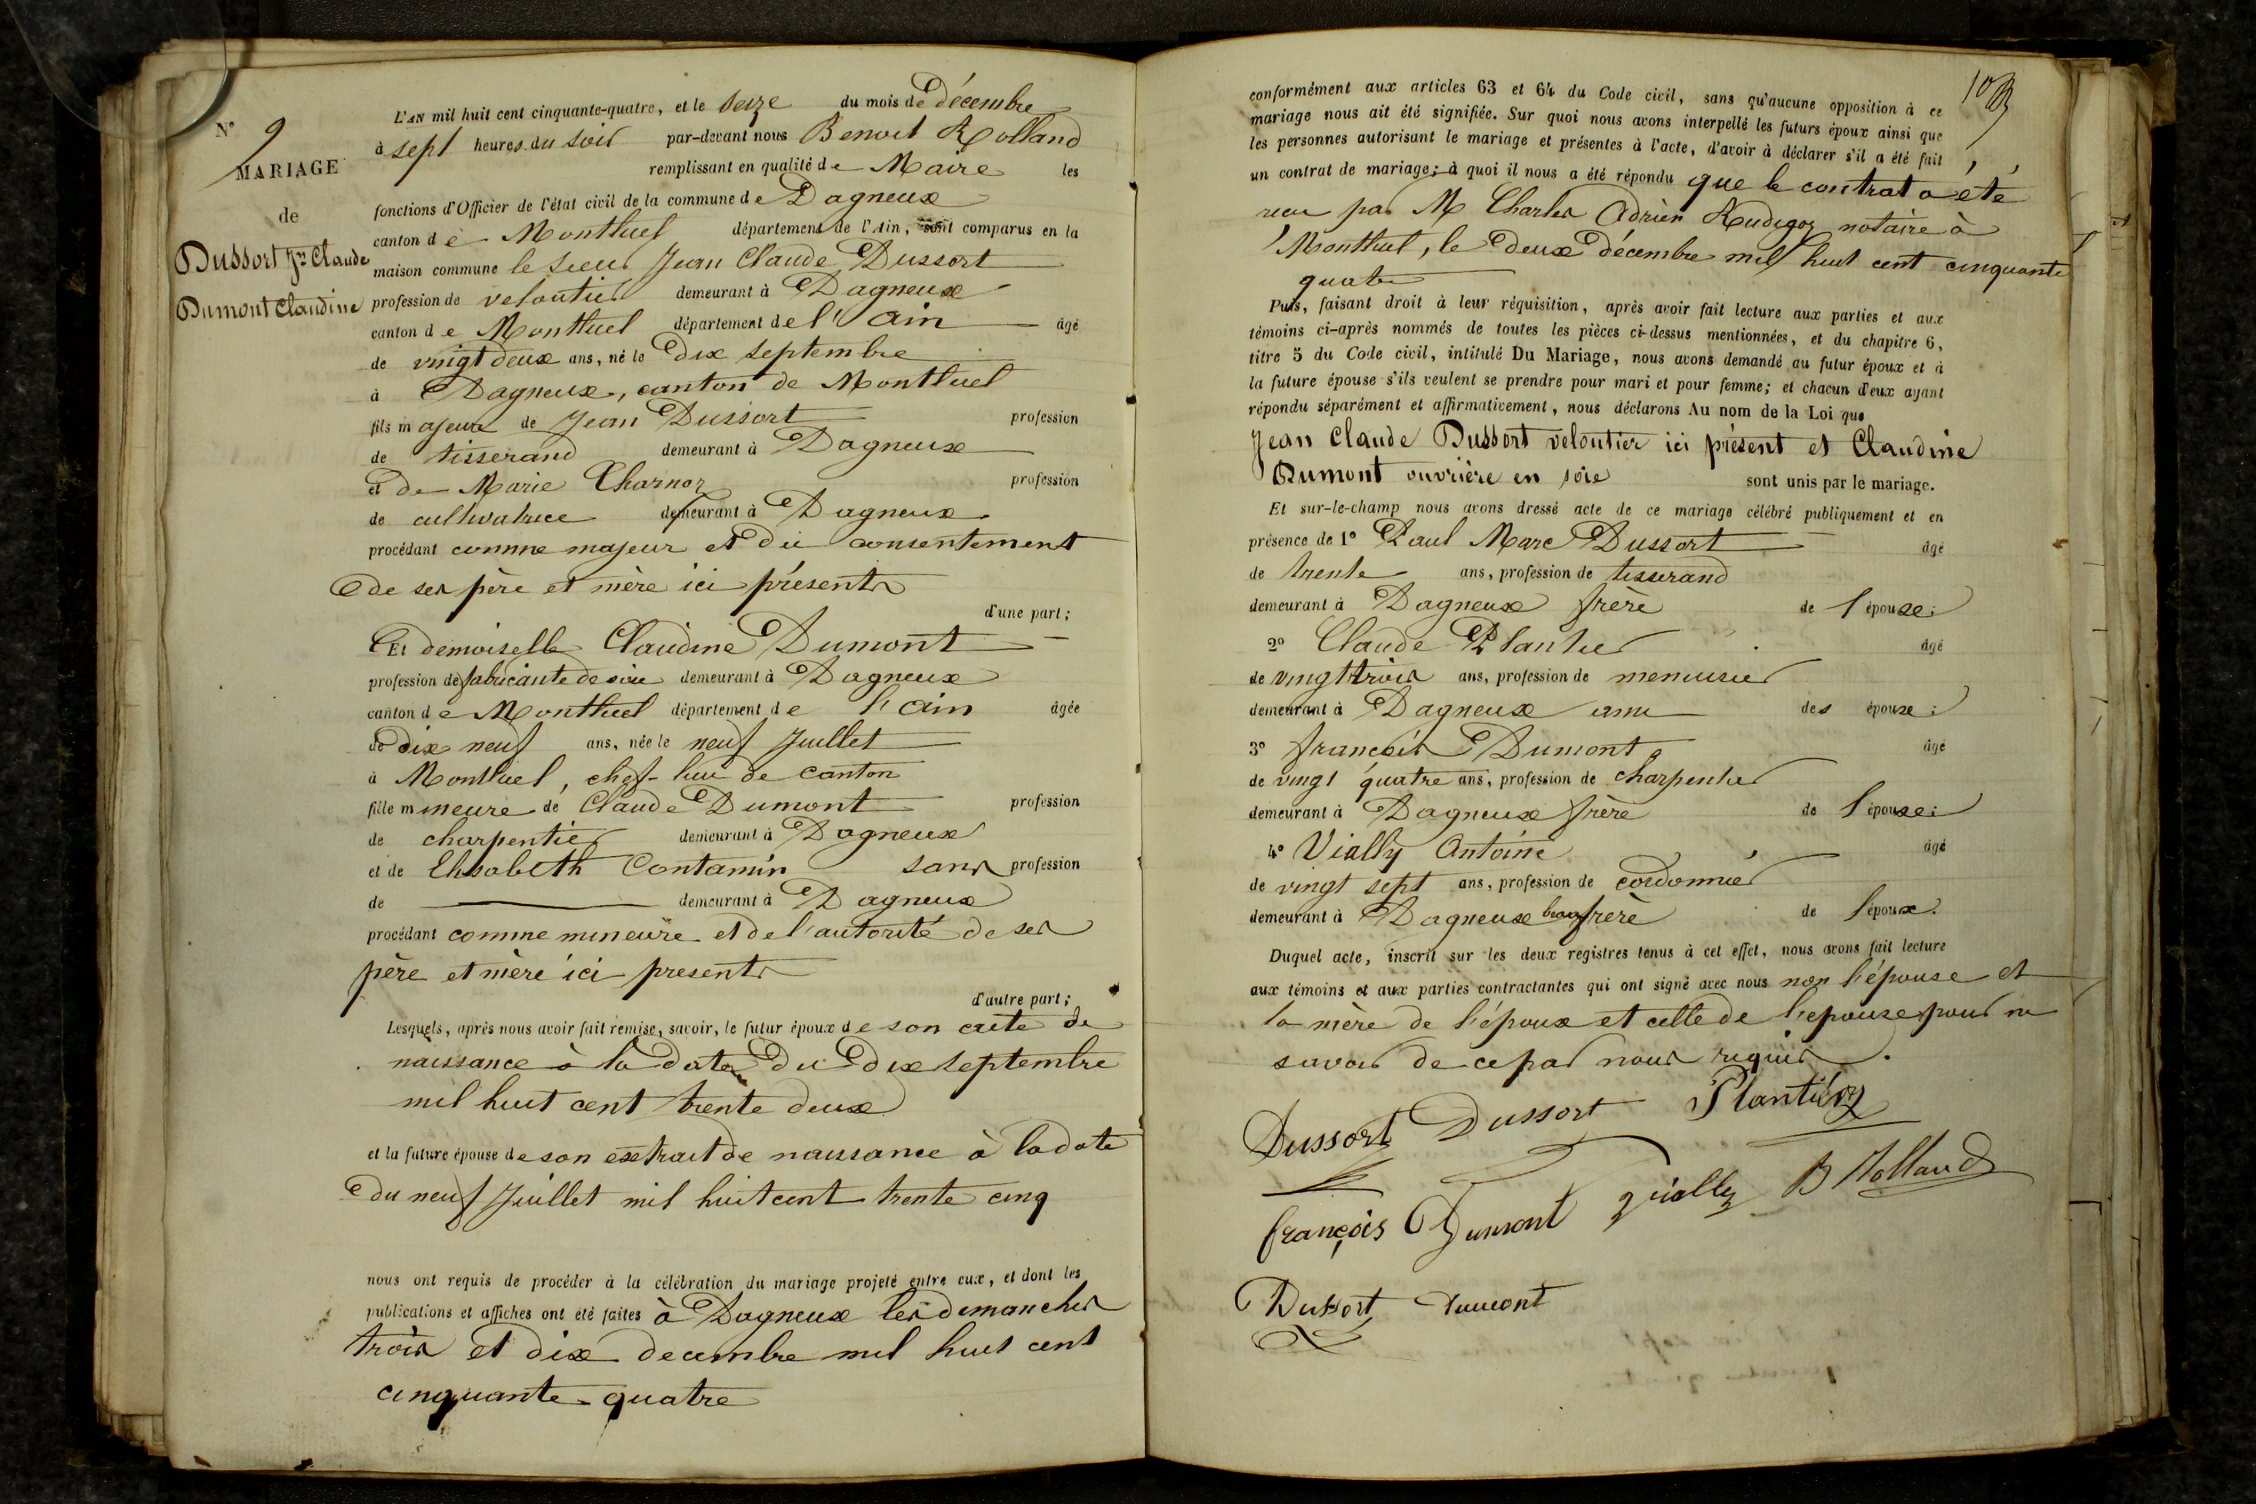 N° 9
MARIAGE
de
Dussort Jn Claude
Dumont Claudine
L'AN mil huit cent cinquante-quatre, et le seize du mois de décembre
à sept heures du soir par-devant nous Benoit Rolland
remplissant en qualité de Maire les
fonctions d'Officier de l'état civil de la commune de Dagneux
canton de Montluel département de l'Ain, sont comparus en la
maison commune le sieur Jean Claude Dussort
profession de veloutier demeurant à Dagneux
canton de Montluel département de l'ain âgé
de vingt deux ans, né le dix septembre
à Dagneux, canton de Montluel
fils majeur de Jean Dussort profession
de tisserand demeurant à Dagneux
et de Marie Charnoz profession
de cultivatrice demeurant à Dagneux
procédant comme majeur et du consentement
de ses père et mère ici présents
d'une part;
Et demoiselle Claudine Dumont
profession de fabricante de soie demeurant à Dagneux
canton de Montluel département de l'ain âgée
de dix neuf ans, née le neuf Juillet
à Montluel, chef-lieu de canton
fille mineure de Claude Dumont profession
de charpentier demeurant à Dagneux
et de Elisabeth Contamin sans profession
de demeurant à Dagneux
procédant comme mineure et de l'autorité de ses
père et mère ici presents
d'autre part;
Lesquels, après nous avoir fait remise, savoir, le futur époux de son acte de
naissance à la date du dix septembre
mil huit cent trente deux
et la future épouse de son extrait de naissance à la date
du neuf Juillet mil huit cent trente cinq
nous ont requis de procéder à la célébration du mariage projeté entre eux, et dont les
publications et affiches ont été faites à Dagneux les dimanches
trois et dix decembre mil huit cent
cinquante-quatre
10
conformément aux articles 63 et 64 du Code civil, sans qu'aucune opposition à ce
mariage nous ait été signifiée. Sur quoi nous avons interpellé les futurs époux ainsi que
les personnes autorisant le mariage et présentes à l'acte, d'avoir à déclarer s'il a été fait
un contrat de mariage; à quoi il nous a été répondu que le contrat a été
recu par M Charles Adrien Rudigoz notaire à
Montluel, le deux décembre mil huit cent cinquante
quatre
Puis, faisant droit à leur réquisition, après avoir fait lecture aux parties et aux
témoins ci-après nommés de toutes les pièces ci-dessus mentionnées, et du chapitre 6,
titre 5 du Code civil, intitulé Du Mariage, nous avons demandé au futur époux et à
la future épouse s'ils veulent se prendre pour mari et pour femme; et chacun d'eux ayant
répondu séparément et affirmativement, nous déclarons Au nom de la Loi que
Jean Claude Dussort veloutier ici présent et Claudine
Dumont ouvrière en soie sont unis par le mariage.
Et sur-le-champ nous avons dressé acte de ce mariage célébré publiquement et en
présence de 1° Paul Marc Dussort âgé
de trente ans, profession de tisserand
demeurant à Dagneux frère de l'épouse;
2° Claude Plantier âgé
de vingt trois ans, profession de menuisier
demeurant à Dagneux ami des époux;
3° françois Dumont âgé
de vingt quatre ans, profession de charpentier
demeurant à Dagneux frère de l'épouse;
4° Vially Antoine âgé
de vingt sept ans, profession de cordonnier
demeurant à Dagneux beaufrère de l'époux.
Duquel acte, inscrit sur les deux registres tenus à cet effet, nous avons fait lecture
aux témoins et aux parties contractantes qui ont signé avec nous non l'épouse et
la mère de l'époux et celle de l'epouse pour ne
savoir de ce par nous requis.
Dussort Dussort Plantier
françois Dumont Vially B Rolland
Dussort Dumont